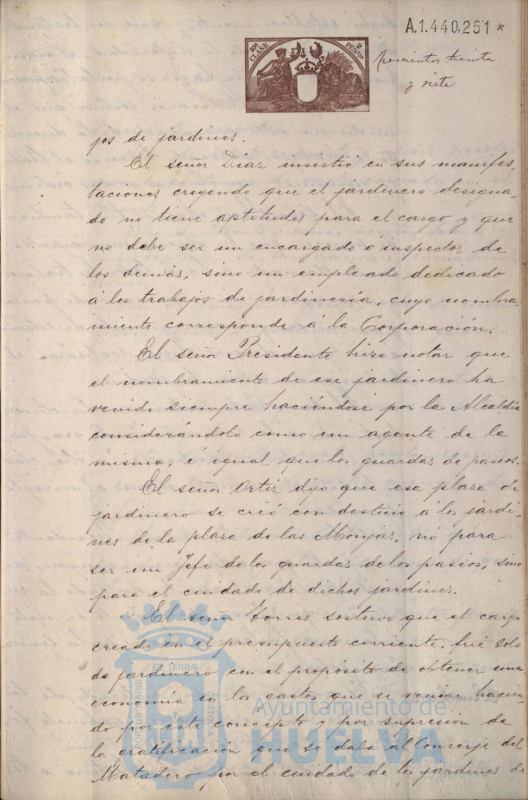 A.1.440.251 *
10ª CLASE
2 PESETAS
y siete
jos de jardines.
El señor Díaz insistió en sus manifes-
taciones creyendo que el jardinero designa-
do no tiene aptitudes para el cargo y que
no debe ser un encargado ó inspector de
los demás, sino un empleado dedicado
á los trabajos de jardinería, cuyo nombra-
miento corresponde á la Corporación.
El señor Presidente hizo notar que
el nombramiento de ese jardinero ha
venido siempre haciéndose por la Alcaldía
considerándolo como un agente de la
misma, é igual que los guardas de paseos.
El señor Ortiz dijo que esa plaza de
jardinero se creó con destino á los jardi-
nes de la plaza de las Monjas, nó para
ser un Jefe de los guardas de los paseos, sino
para el cuidado de dichos jardines.
El señor Torres sostuvo que el cargo
creado en el presupuesto corriente, fué solo
de jardinero con el propósito de obtener una
economía en los gastos que se venían hacien-
do por este concepto y por supresión de
la gratificación que se daba al Conserje del
Matadero por el cuidado de los jardines de
Ayuntamiento de
HUELVA